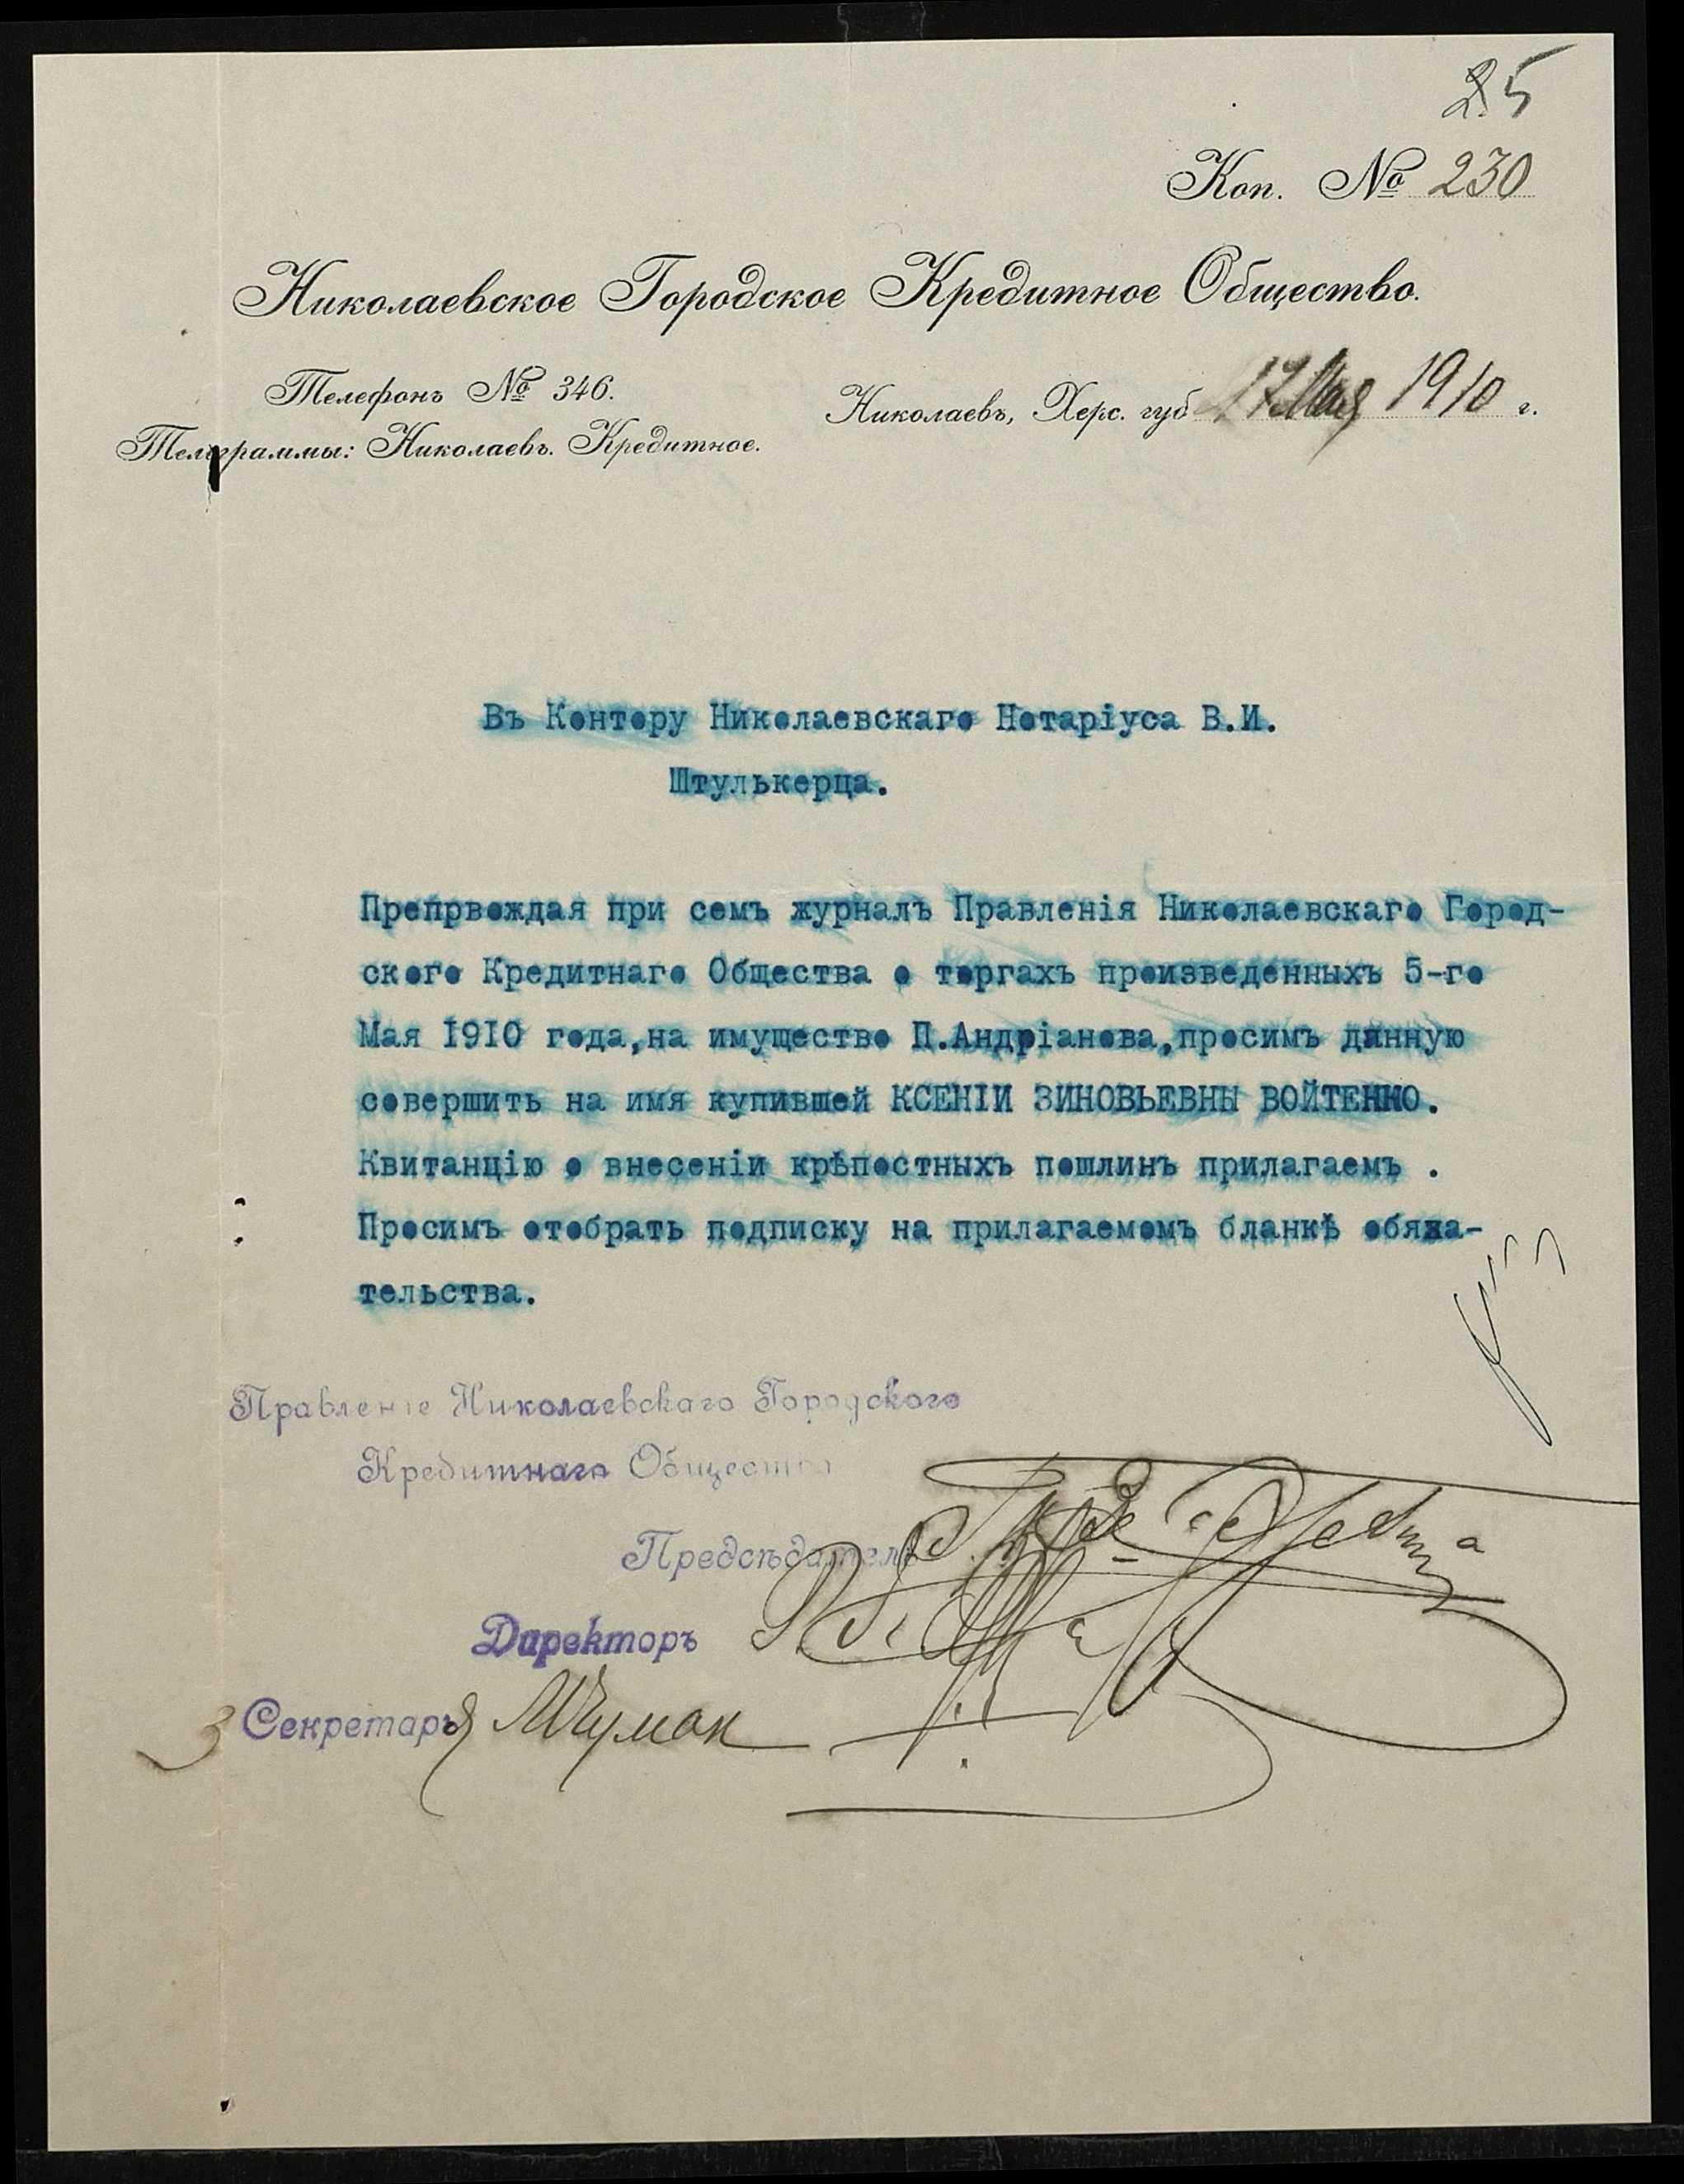 25
Коп. № 230
Николаевское Городское Кредитное Общество.
Телефонъ № 346.
Николаевъ, Херс. губ 17 Мая 1910 г.
Телеграммы: Николаевъ. Кредитное.
Въ Контору Николаевскаго Нотаріуса В.И.
Штулькерца.
Препрвождая при семъ журналъ Правленія Николаевскаго Город-
ского Кредитнаго Общества о торгахъ произведенныхъ 5-го
Мая 1910 года,на имущество П.Андріанова,просимъ данную
совершить на имя купившей КСЕНІИ ЗИНОВЬЕВНЫ ВОЙТЕНКО.
Квитанцію о внесеніи крѣпостныхъ пошлинъ прилагаемъ .
Просимъ отобрать подписку на прилагаемомъ бланкѣ обяза-
тельства.
Правленіе Николаевскаго Городского
Кредитнаго Общества
Предсѣдатель
Директоръ
З Секретаря МЧумак